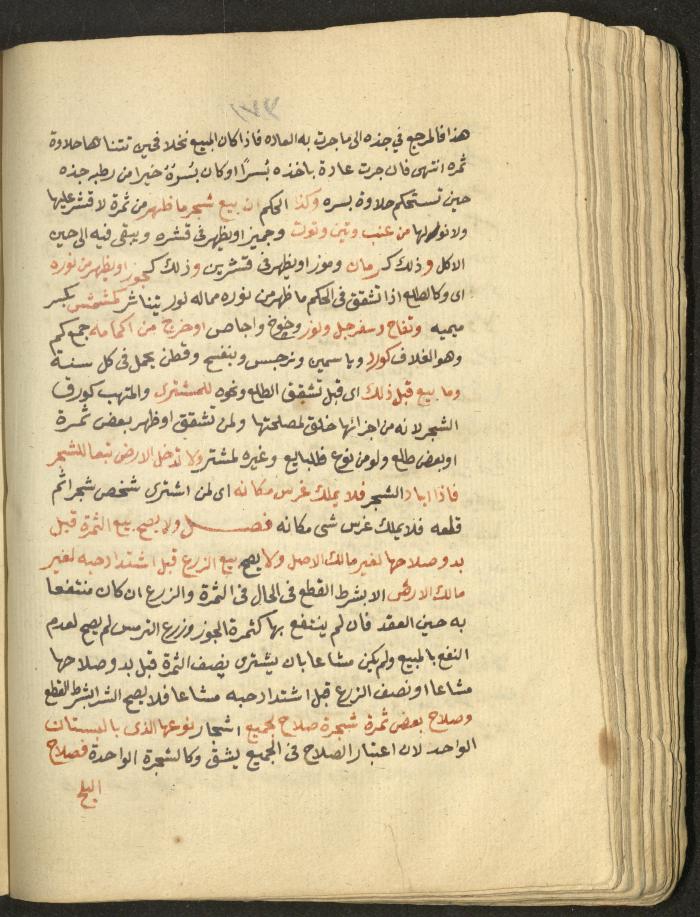 هذا فالمرجع في جذه الى ما جرت به العاده فاذا كان المبيع نخلا فحين تتناها حلاوة
ثمره انتهى فان جرت عادة باخذه بُسرًا او كان بُسرُهُ خيرا من رطبه جذه
حين تستحكم حلاوة بسره وكذا الحكم ان بيع شجر ما ظهر من ثمرة لا قشر عليها
ولا نور لها من عنب وتين وتوت وجميز او يظهر في قشره ويبقى فيه الى حين
الاكل وذلك كرمان وموز او يظهر في قشرين وذلك كجوز او يظهر من نوره
اى وكالطلع اذا تشقق في الحكم ما ظهر من نوره مما له نور يتناثر كمشمش بكسر
ميميه وتفاح وسفرجل ولوز وخوخ واجاص او خرج من اكمامه جمع كم
وهو الغلاف كورد وياسمين ونرجس وبنفسج وقطن يحمل في كل سنة
وما بيع قبل ذلك اى قبل تشقق الطلع ونحوه للمشترى والمتهب كورق
الشجر لانه من اجزائها خلق لمصلحتها ولمن تشقق او ظهر بعض ثمرة
او بعض طلع ولو من نوع فلبايع وغيره لمشتر ولا تدخل الارض تبعا للشجر
فاذا اباد الشجر فلا يملك غرس مكانه اى لمن اشترى شخص شجرا ثم
قلعه فلا يملك غرس شى مكانه فصل ولا يصح بيع الثمرة قبل
بدو صلاحها لغير مالك الاصل ولا يصح بيع الزرع قبل اشتداد حبه لغير
مالك الارض الا بشرط القطع في الحال في الثمرة والزرع ان كان منتفعا
به حين العقد فان لم ينتفع بها كثمرة الجوز وزرع الترمس لم يصح لعدم
النفع بالمبيع ولم يكن مشاعا بان يشترى نصف الثمرة قبل بدو صلاحها
مشاعا او نصف الزرع قبل اشتداد حبه مشاعا فلا يصح الشرا بشرط القطع
وصلاح بعض ثمرة شجرة صلاح لجميع اشجار نوعها الذى بالبستان
الواحد لان اعتبار الصلاح في الجميع يشق وكالشجرة الواحدة فصلاح
البلح